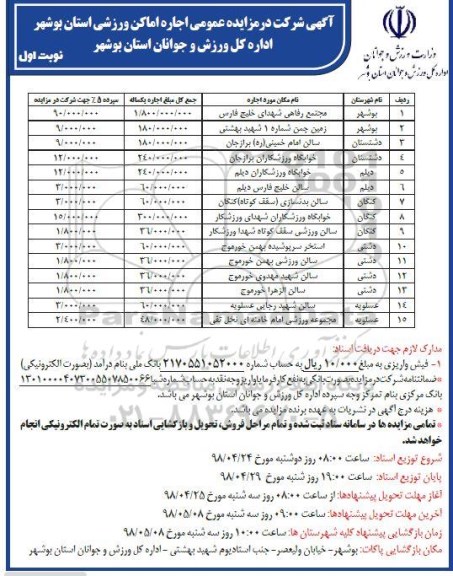 آگهی شرکت در مزایده عمومی اجاره اماکن ورزشی استان بوشهر
اداره کل ورزش و جوانان استان بوشهر
نوبت اول
وزارت ورزش و جوانان
اداره کل ورزش و جوانان استان بوشهر
ردیف نام شهرستان نام مکان مورد اجاره جمع کل مبلغ اجاره یکساله سپرده ۵٪ جهت شرکت در مزایده
۱ بوشهر مجتمع رفاهی شهدای خلیج فارس ۱/۸۰۰/۰۰۰/۰۰۰ ۹۰/۰۰۰/۰۰۰
۲ بوشهر زمین چمن شماره ۱ شهید بهشتی ۱۸۰/۰۰۰/۰۰۰ ۹/۰۰۰/۰۰۰
۳ دشتستان سالن امام خمینی(ره) برازجان ۱۸۰/۰۰۰/۰۰۰ ۹/۰۰۰/۰۰۰
۴ دشتستان خوابگاه ورزشکاران برازجان ۲۴۰/۰۰۰/۰۰۰ ۱۲/۰۰۰/۰۰۰
۵ دیلم خوابگاه ورزشکاران دیلم ۲۴۰/۰۰۰/۰۰۰ ۱۲/۰۰۰/۰۰۰
۶ دیلم سالن خلیج فارس دیلم ۶۰/۰۰۰/۰۰۰ ۳/۰۰۰/۰۰۰
۷ کنگان سالن بدنسازی (سقف کوتاه)کنگان ۶۰/۰۰۰/۰۰۰ ۳/۰۰۰/۰۰۰
۸ کنگان خوابگاه ورزشکاران شهدای ورزشکار ۳۰۰/۰۰۰/۰۰۰ ۱۵/۰۰۰/۰۰۰
۹ کنگان سالن ورزشی سقف کوتاه شهدا ورزشکار ۳۶/۰۰۰/۰۰۰ ۱/۸۰۰/۰۰۰
۱۰ دشتی استخر سرپوشیده بهمن خورموج ۶۰/۰۰۰/۰۰۰ ۳/۰۰۰/۰۰۰
۱۱ دشتی سالن ورزشی بهمن خورموج ۳۶/۰۰۰/۰۰۰ ۱/۸۰۰/۰۰۰
۱۲ دشتی سالن شهید مهدوی خورموج ۳۶/۰۰۰/۰۰۰ ۱/۸۰۰/۰۰۰
۱۳ دشتی سالن الزهرا خورموج ۳۶/۰۰۰/۰۰۰ ۱/۸۰۰/۰۰۰
۱۴ عسلویه سالن شهید رجایی عسلویه ۶۰/۰۰۰/۰۰۰ ۳/۰۰۰/۰۰۰
۱۵ عسلویه مجموعه ورزشی امام خامنه ای نخل تقی ۴۸/۰۰۰/۰۰۰ ۲/۴۰۰/۰۰۰
مدارک لازم جهت دریافت اسناد:
۱- فیش واریزی به مبلغ ۱۰/۰۰۰ ریال به حساب شماره ۲۱۷۰۵۵۱۰۵۲۰۰۰ بانک ملی بنام درآمد (بصورت الکترونیکی)
*ضمانتنامه شرکت در مزایده بصورت بانکی به نفع کارفرما یا واریز وجه نقد به حساب شماره شبا
بانک مرکزی بنام تمرکز وجه سپرده اداره کل ورزش و جوانان استان بوشهر می باشد.
* هزینه درج آگهی در نشریات به عهده برنده مزایده می باشد.
* تمامی مزایده ها در سامانه ستاد ثبت شده و تمام مراحل فروش، تحویل و بازگشایی اسناد به صورت تمام الکترونیکی انجام
خواهد شد.
شروع توزیع اسناد: ساعت ۰۸:۰۰ روز دوشنبه مورخ ۹۸/۰۴/۲۴
پایان توزیع اسناد: ساعت ۱۹:۰۰ روز شنبه مورخ ۹۸/۰۴/۲۹
آغاز مهلت تحویل پیشنهادها: از ساعت ۰۸:۰۰ روز سه شنبه مورخ ۹۸/۰۴/۲۵
آخرین مهلت تحویل پیشنهادها: ساعت ۰۹:۰۰ روز سه شنبه مورخ ۹۸/۰۵/۰۸
زمان بازگشایی پیشنهاد کلیه شهرستان ها: ساعت ۱۰:۰۰ روز سه شنبه مورخ ۹۸/۰۵/۰۸
مکان بازگشایی پاکات: بوشهر- خیابان ولیعصر- جنب استادیوم شهید بهشتی - اداره کل ورزش و جوانان استان بوشهر